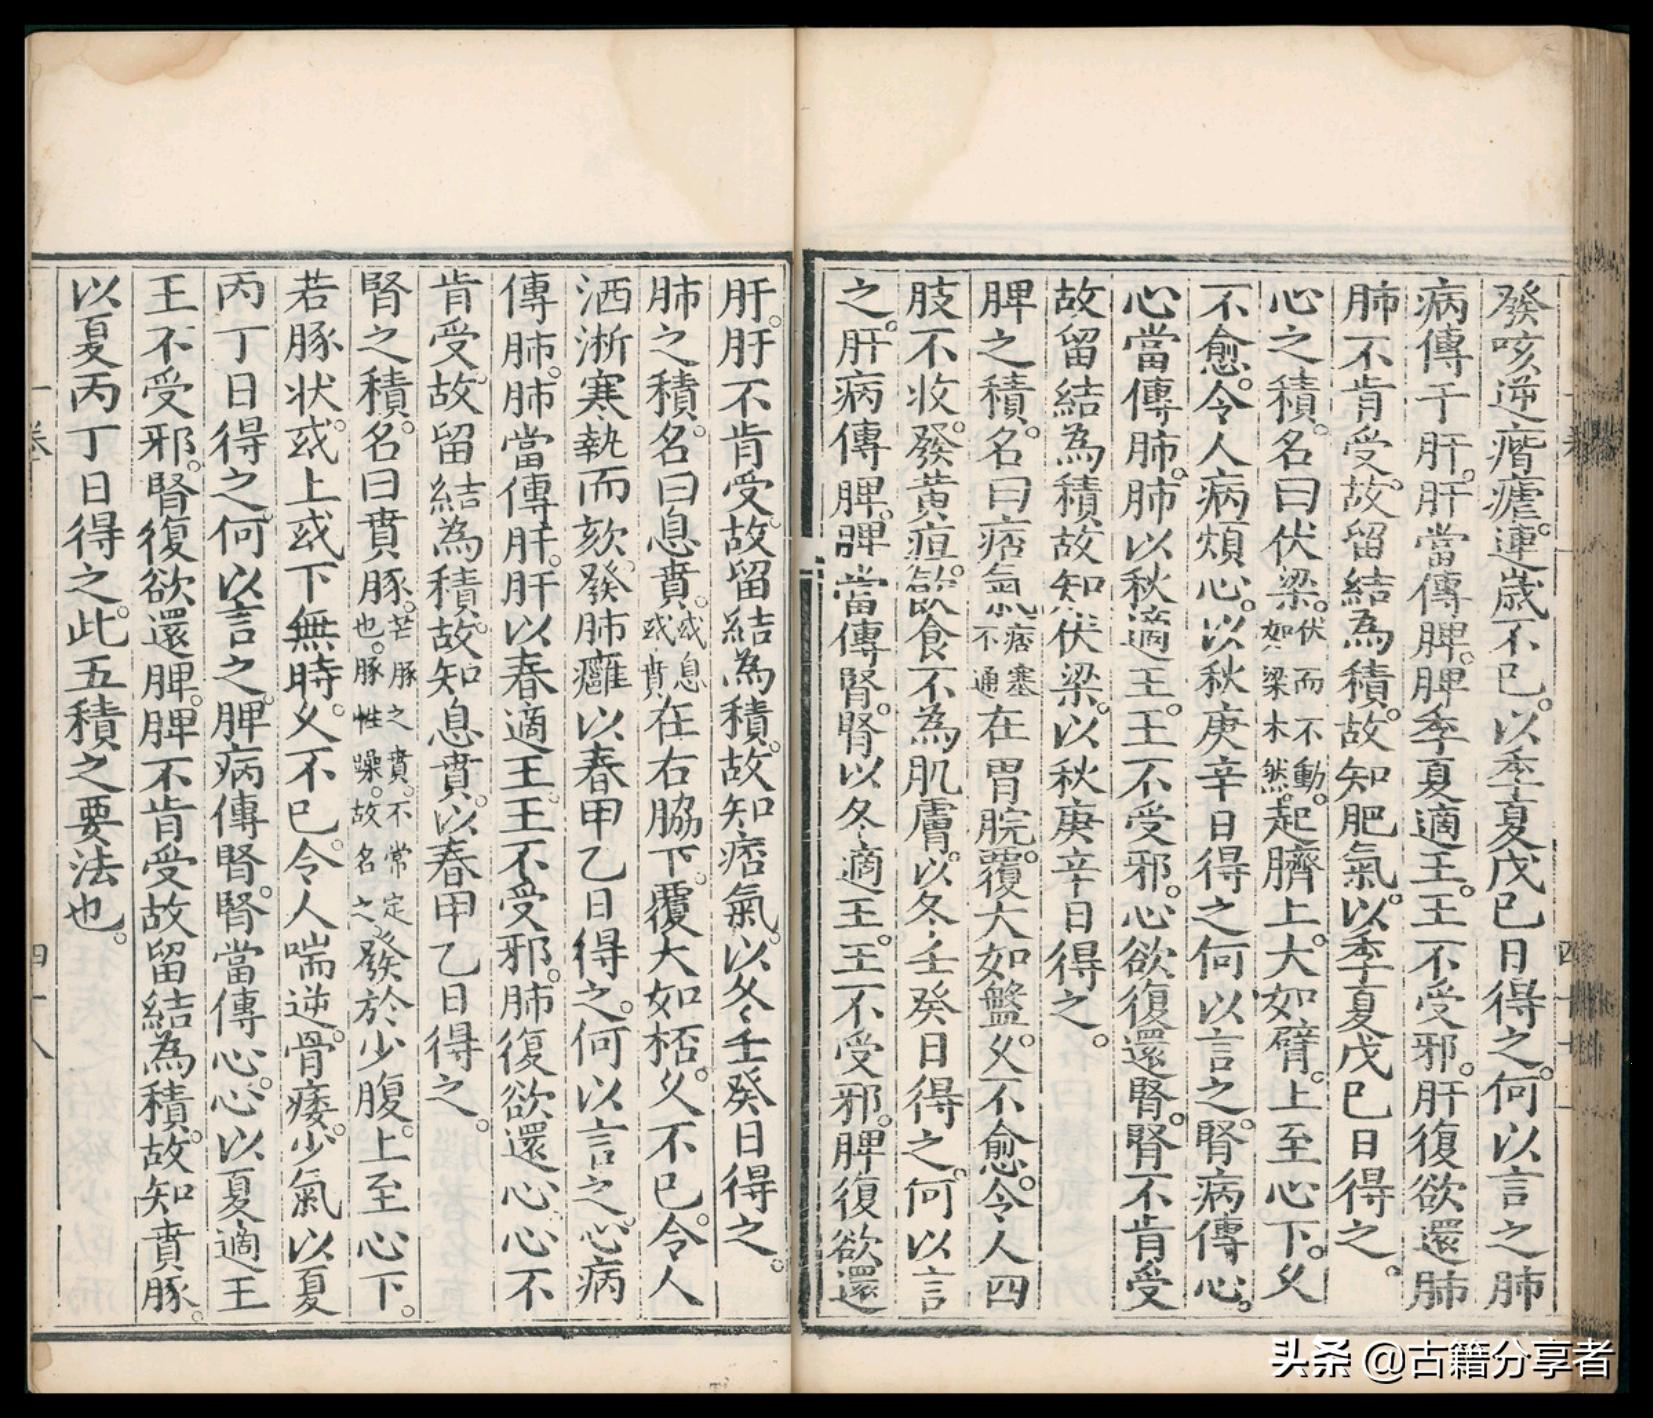 發咳逆㾬瘧。連歲不已。以季夏戊巳日得之。何以言之肺
病傳于肝。肝當傳脾。脾季夏適王。王不受邪。肝復欲還肺
肺不肯受。故留結為積。故知肥氣。以季夏戊巳日得之。
心之積。名曰伏梁。伏而不動。如梁木然。起臍上。大如臂。上至心下。久
不愈。令人病煩心。以秋庚辛日得之何以言之。腎病傳心。
心當傳肺。肺以秋適王。王不受邪。心欲復還腎。腎不肯受
故留結為積故知伏梁。以秋庚辛日得之。
脾之積。名曰痞氣痞塞不通在胃脘。覆大如盤。久不愈。令人四
肢不收。發黃疸。飲食不為肌膚。以冬壬癸日得之。何以言
之。肝病傳脾。脾當傳腎。腎以冬適王。王不受邪。脾復欲還
肝。肝不肯受。故留結為積。故知痞氣。以冬壬癸日得之。
肺之積。名曰息賁。或息或賁在右脇下。覆大如桮。久不已。令人
洒淅寒熱而欬。發肺癰以春甲乙日得之。何以言之。心病
傳肺。肺當傳肝。肝以春適王。王不受邪。肺復欲還心。心不
肯受。故留結為積。故知息賁。以春甲乙日得之。
腎之積。名曰賁豚。豚之賁。不常定也。豚性躁。故名之。發於少腹。上至心下。
若豚狀。或上或下無時。久不已。令人喘逆。骨痿。少氣以夏
丙丁日得之。何以言之。脾病傳腎。腎當傳心。心以夏適王
王不受邪。腎復欲還脾。脾不肯受故留結為積。故知賁豚。
以夏丙丁日得之。此五積之要法也。
卷
四十八
头条 @古籍分享者